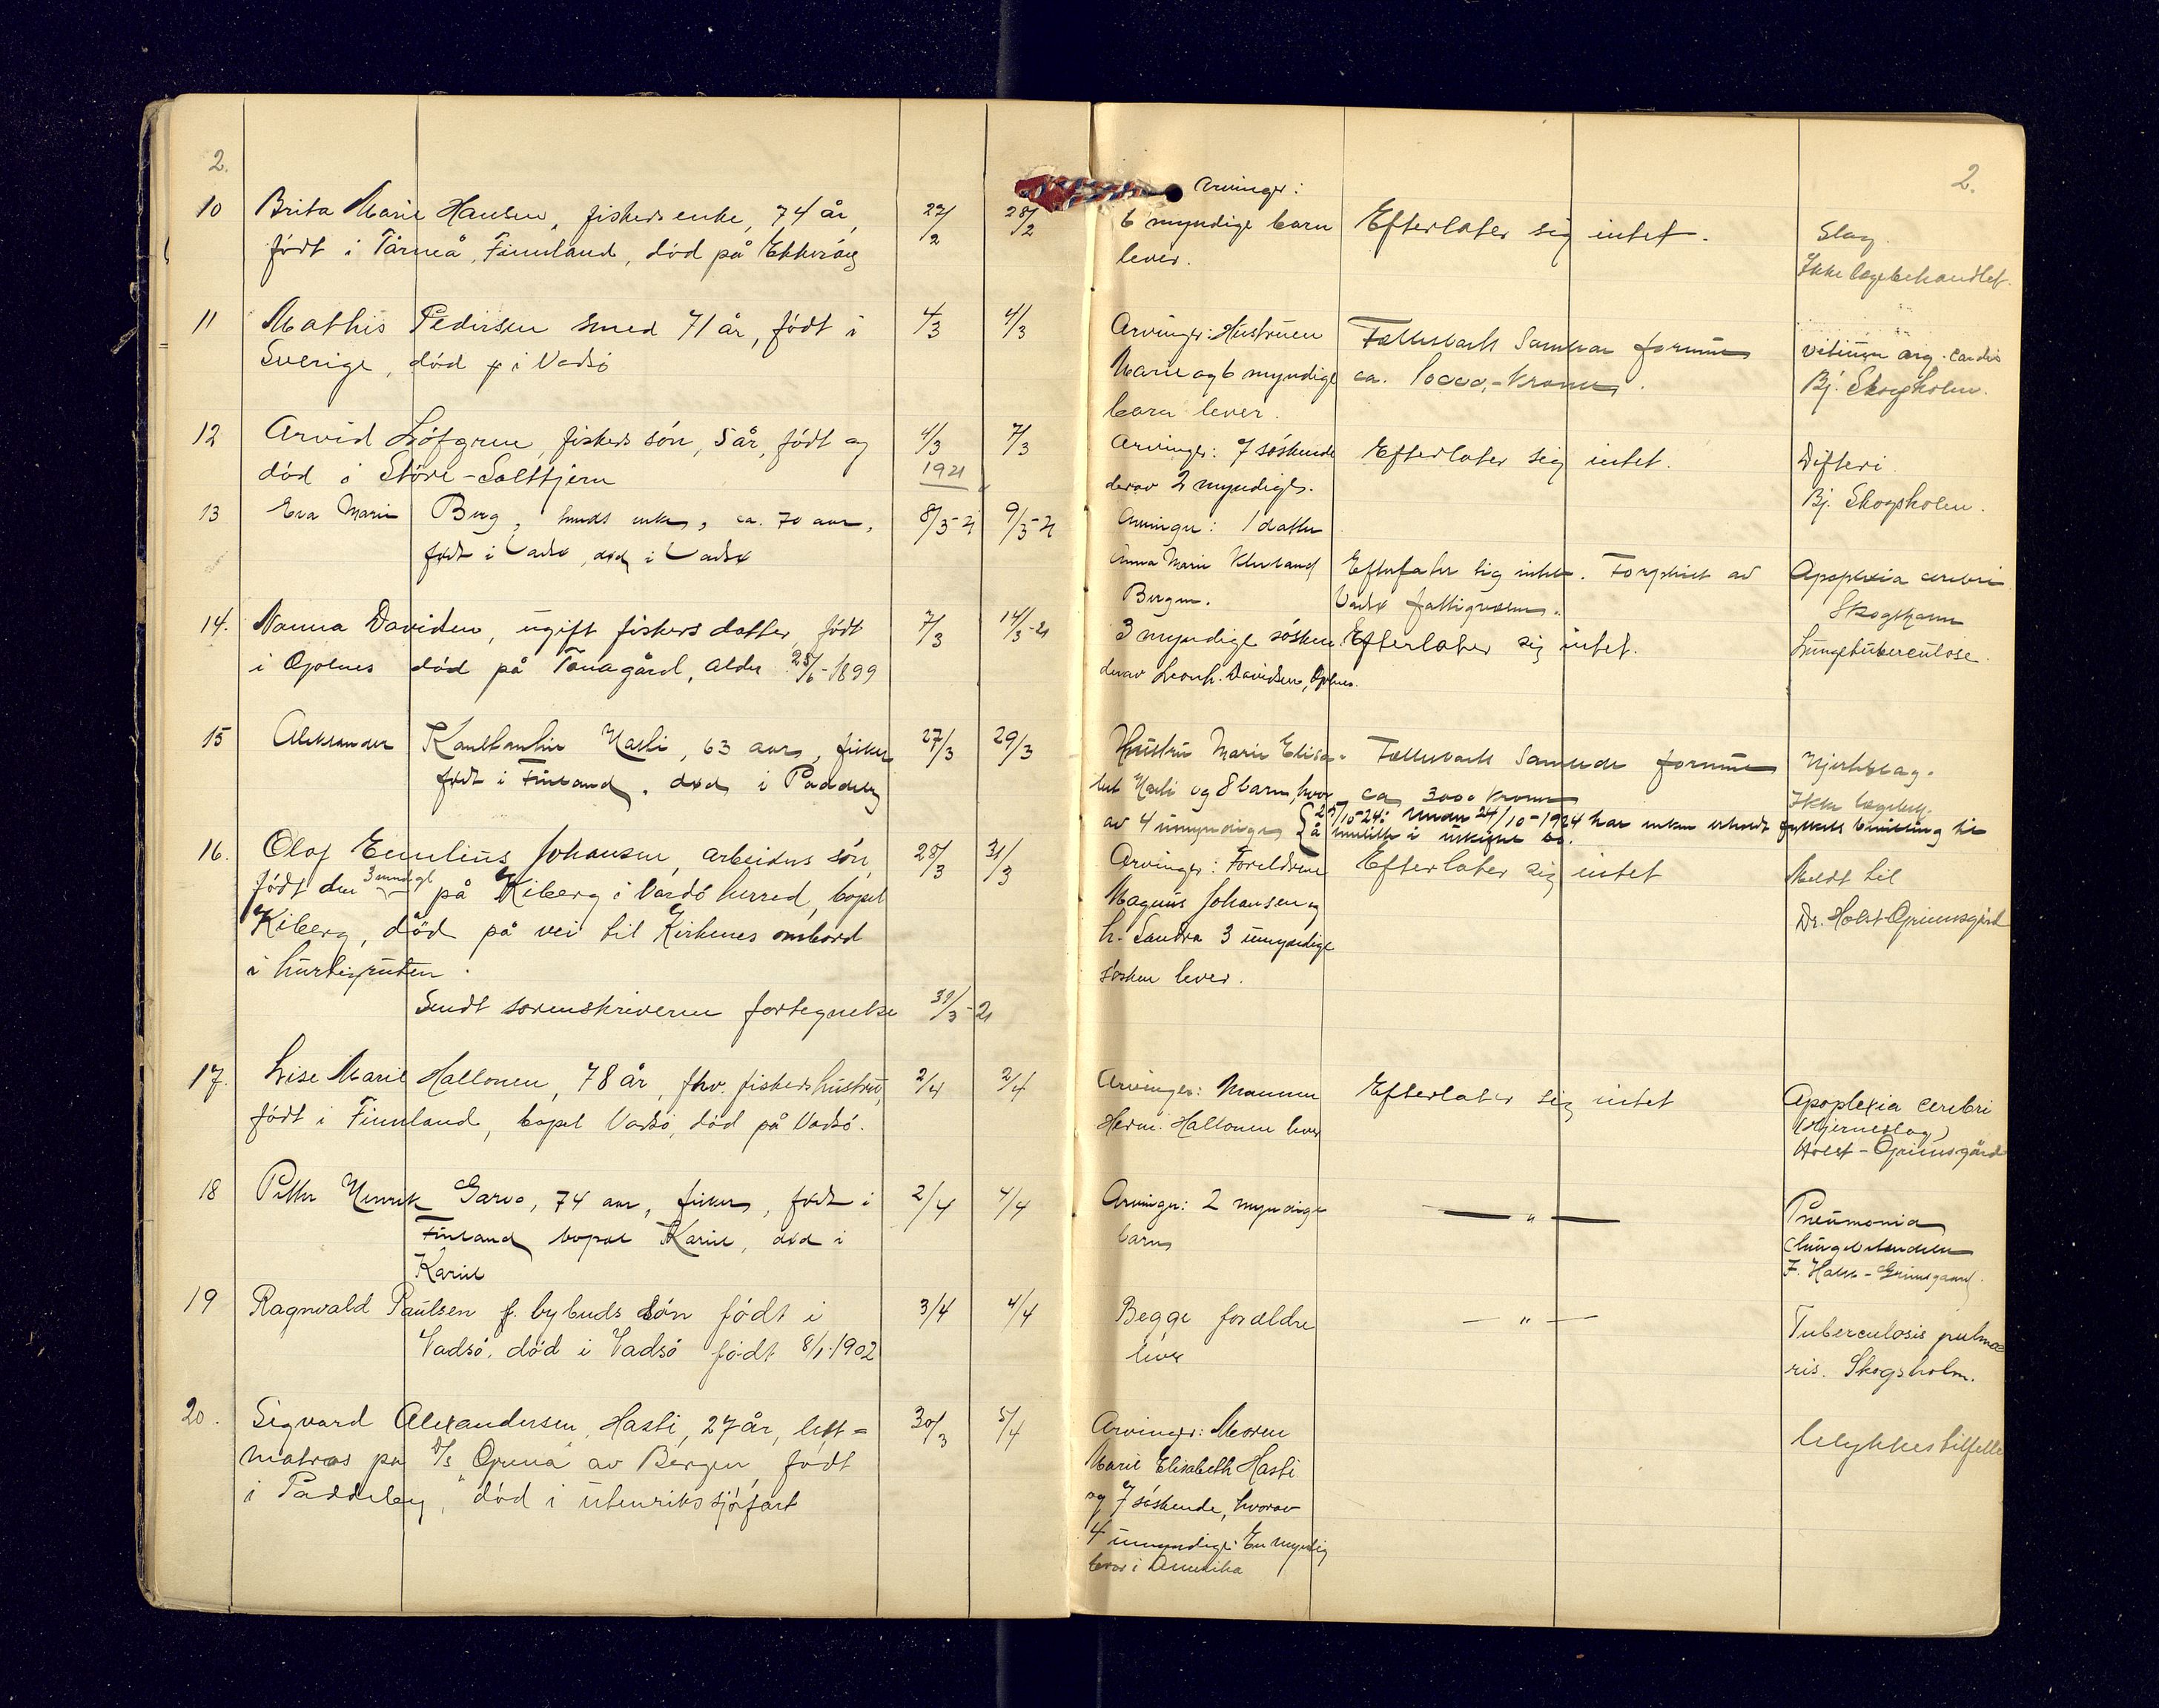 2.
2.
10 Brita Marie Hansen, fiskers enke, 74 år, 27/2 28/2
født i Tårneå, Finnland, död på Ekkerøy
Arvinger:
6 myndige barn
lever.
Efterlater sig intet.
Slag.
Ikke lægebehandlet.
11 Mathis Pedersen smed 71 år, født i 4/3 4/3
Sverige, död i Vadsö
Arvinger: Hustruen
Marie og 6 myndige
barn lever.
Fællesboets Samlede formue
ca. 10000,- kroner.
vitium org. cordis
Bj. Skogsholm.
12 Arvid Löfgren, fiskers sön, 5 år, födt og 4/3 7/3
död i Störe-Salttjern 1921
Arvinger: 7 söskende
derav 2 myndige.
Efterlater sig intet.
Difteri.
Bj. Skogsholm.
13 Eva Marie Berg, enke, ca. 70 aar, 8/3-21 9/3-21
født i Vadsø, død i Vadsø
Arvinger: 1 datter
Anna Marie
Bergen.
Efterlater sig intet. Forpleiet av
Vadsø fattigvæsen.
Apoplexia cerebri
14. Nanna Davidsen, ugift fiskers datter, födt 7/3 14/3-21
i Golnes död på Tanagård, alder 25/6-1899
3 myndige sösken
derav Leonh. Davidsen, Golnes.
Efterlater sig intet.
Lungetuberculose.
15 Aleksander Konstantin Hasti, 63 aar, fisker 27/3 29/3
født i Finland, død i Paddeby
Hustru Marie Elisa-
bet Hasti og 8 barn, hvor
av 4 umyndige
Fællesboets Samlede formue
ca 3000 kroner
24/10-24: Under 24/10-1924 har enken erholdt fylkets bevilling til
å hensitte i uskiftet bo.
Hjerteslag.
Ikke lægebeh.
16. Olaf Emelius Johansen, arbeiders sön, 28/3 31/3
födt den 3 mnd gl på Kiberg i Vardö herred, bopel
Kiberg, död på vei til Kirkenes ombord
i hurtigruten.
Arvinger: Foreldrene
Magnus Johansen og
h. Sandra 3 umyndige
sösken lever.
Efterlater sig intet
Meldt til
Dr. Holst Grimsgård
Sendt sorenskriveren fortegnelse 31/3-21
17. Lise Marie Hallonen, 78 år, fhv. fiskers hustru, 2/4 2/4
födt i Finnland, bopel Vadsö, död på Vadsö.
Arvinger: Mannen
Herm. Hallonen lever
Efterlater sig intet
Apoplexia cerebri
(Hjerneslag)
Holst-Grimsgård
18 Petter Henrik Garvo, 74 aar, fisker, født i 2/4 4/4
Finland bopæl Kariel, død i
Kariel
Arvinger: 2 myndige
barn
— " —
Pneumonia
(lungebetendelse
F. Holst-Grimsgaard.
19 Ragnvald Paulsen f. bybuds sön födt i 3/4 4/4
Vadsö, död i Vadsö födt 8/1.1902
Begge forældre
lever
— " —
Tuberculosis pulmo
ris. Skogsholm.
20. Sigvard Alexandersen Hasti, 27 år, lett- 30/3 5/4
matros på D/s "Gruna" av Bergen, födt
i Paddeby, död i utenrikssjöfart
Arvinger: Moren
Marie Elisabeth Hasti
og 7 söskende, hvorav
4 umyndige. En myndig
bror i Amerika
Ulykkestilfelle